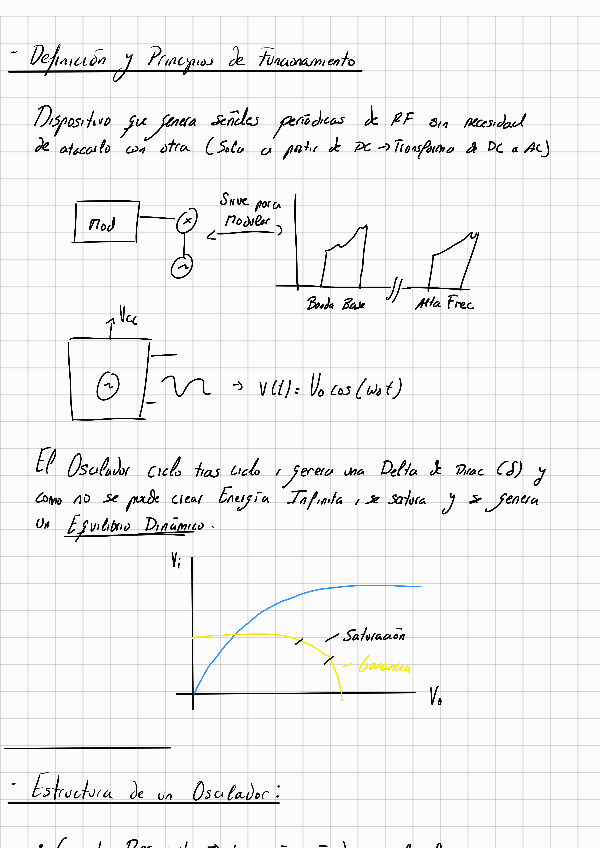 - Definición y Principios de Funcionamiento
Dispositivo que genera señales periódicas de RF sin necesidad
de atacarlo con otra (Solo a partir de DC → Transforma de DC a AC)
Mod
x
~
Sirve para
Modular
Banda Base
Alta Frec
Vcc
~
→ V(t) = V₀ cos(ω₀t)
El Oscilador ciclo tras ciclo, genera una Delta de Dirac (δ) y
como no se puede crear Energía Infinita, se satura y se genera
un Equilibrio Dinámico.
Vi
Saturación
Ganancia
V₀
- Estructura de un Oscilador: